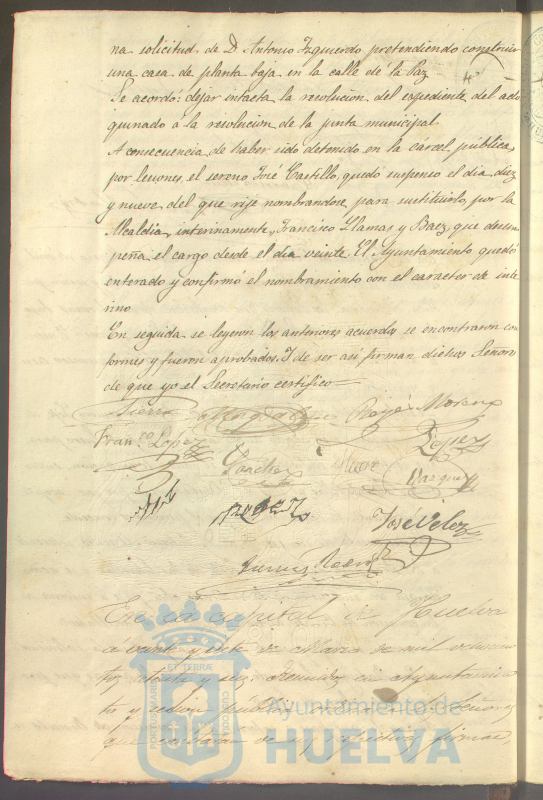 na solicitud de D. Antonio Izquierdo pretendiendo construir
una casa de planta baja en la calle de la Paz
Se acordó: dejar intacta la resolucion del espediente del ado
quinado á la resolucion de la junta municipal
A consecuencia de haber sido detenido en la cárcel pública
por lesiones, el sereno José Castillo, quedó suspenso el dia diez
y nueve del que rije nombrandose para sustituirlo por la
Alcaldia, interinamente, Francisco Llamas y Baez, que desem
peña el cargo desde el dia veinte. El Ayuntamiento quedó
enterado y confirmó el nombramiento con el caracter de inte
rino
En seguida se leyeron los anteriores acuerdos se encontraron con
formes y fueron aprobados. Y de ser asi firman dichos Señores
de que yo el Secretario certifico
Sierra Moreno
Fran.co Lopez Lopez
Sanchez
Vazquez
José Velez
En la capital de Huelva
á veinte y siete de Marzo de mil ochocien
tos ochenta y seis, Reunidos en Ayuntamien
to y sesion Señores
que
ET TERRAE
PORTUS MARIS
CUSTODIA
Ayuntamiento de
HUELVA